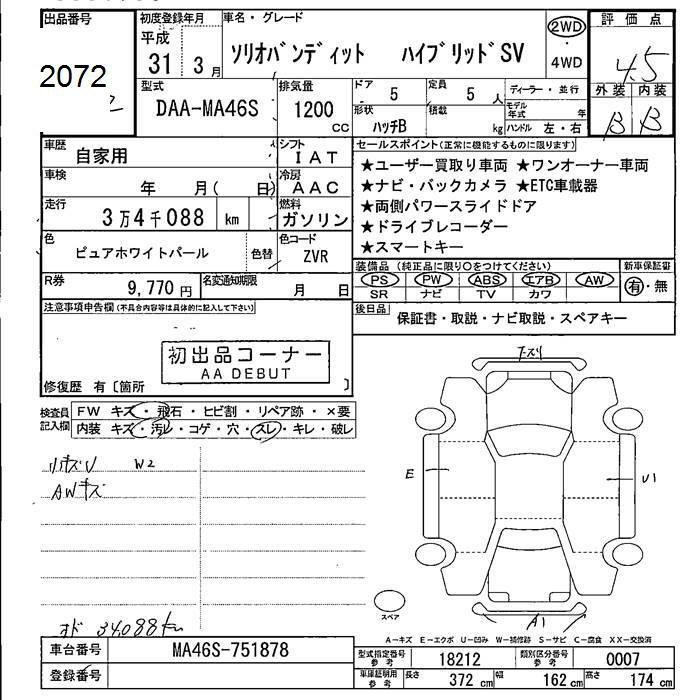 出品番号
2072
初度登録年月
平成
31 3月
車名・グレード
ソリオバンディット ハイブリッドSV
2WD
・
4WD
評価点
4.5
型式
DAA-MA46S
排気量
1200
CC
ドア
5
定員
5 人
ディーラー・並行
形状
ハッチB
積載
kg
モデル年式 年
ハンドル 左・右
外装 内装
B B
車歴
自家用
シフト
IAT
車検
年 月( 日)
冷房
AAC
走行
3万4千088 km
燃料
ガソリン
色
ピュアホワイトパール
色替
色コード
ZVR
R券
9,770円
名変通知期限
月 日
セールスポイント(正常に機能するものに限ります)
★ユーザー買取り車両 ★ワンオーナー車両
★ナビ・バックカメラ ★ETC車載器
★両側パワースライドドア
★ドライブレコーダー
★スマートキー
装備品 (純正品に限り○をつけてください)
PS PW ABS エアB AW
SR ナビ TV カワ
新車保証書
有・無
後日品
保証書・取説・ナビ取説・スペアキー
注意事項申告欄(不具合内容等は具体的に記入して下さい)
初出品コーナー
AA DEBUT
修復歴 有〔箇所 〕
検査員
記入欄
FW キズ・飛石・ヒビ割・リペア跡・×要
内装 キズ・汚レ・コゲ・穴・スレ・キレ・破レ
W2
AWキズ
オド 34,088km
E
U1
A1
スペア
A-キズ E-エクボ U-凹み W-補修跡 S-サビ C-腐食 XX-交換済
車台番号
MA46S-751878
登録番号
型式指定番号
参考
18212
類別区分番号
参考
0007
車庫証明用
参考
長さ 372 cm
幅 162 cm
高さ 174 cm